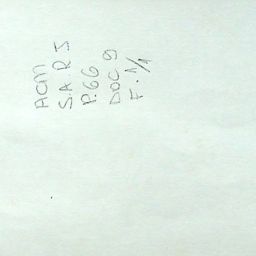 ACM
S.A R I
P.66
DOC 9
F. 1/1